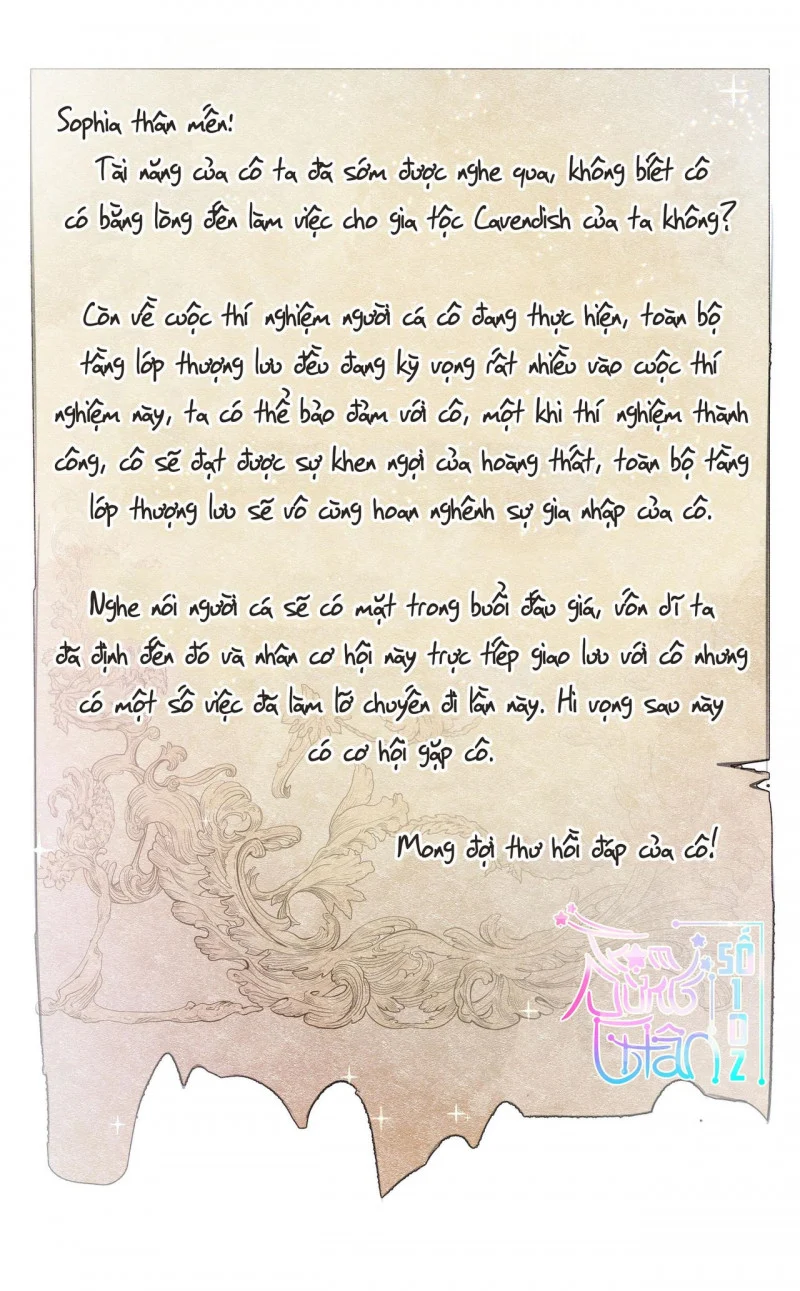 Sophia thân mến!
Tài năng của cô ta đã sớm được nghe qua, không biết cô
có bằng lòng đến làm việc cho gia tộc Cavendish của ta không?
Còn về cuộc thí nghiệm người cá cô đang thực hiện, toàn bộ
tầng lớp thượng lưu đều đang kỳ vọng rất nhiều vào cuộc thí
nghiệm này, ta có thể bảo đảm với cô, một khi thí nghiệm thành
công, cô sẽ đạt được sự khen ngợi của hoàng thất, toàn bộ tầng
lớp thượng lưu sẽ vô cùng hoan nghênh sự gia nhập của cô.
Nghe nói người cá sẽ có mặt trong buổi đấu giá, vốn dĩ ta
đã định đến đó và nhân cơ hội này trực tiếp giao lưu với cô nhưng
có một số việc đã làm lỡ chuyến đi lần này. Hi vọng sau này
có cơ hội gặp cô.
Mong đợi thư hồi đáp của cô!
Trạm
Dừng
Chân
SỐ
102